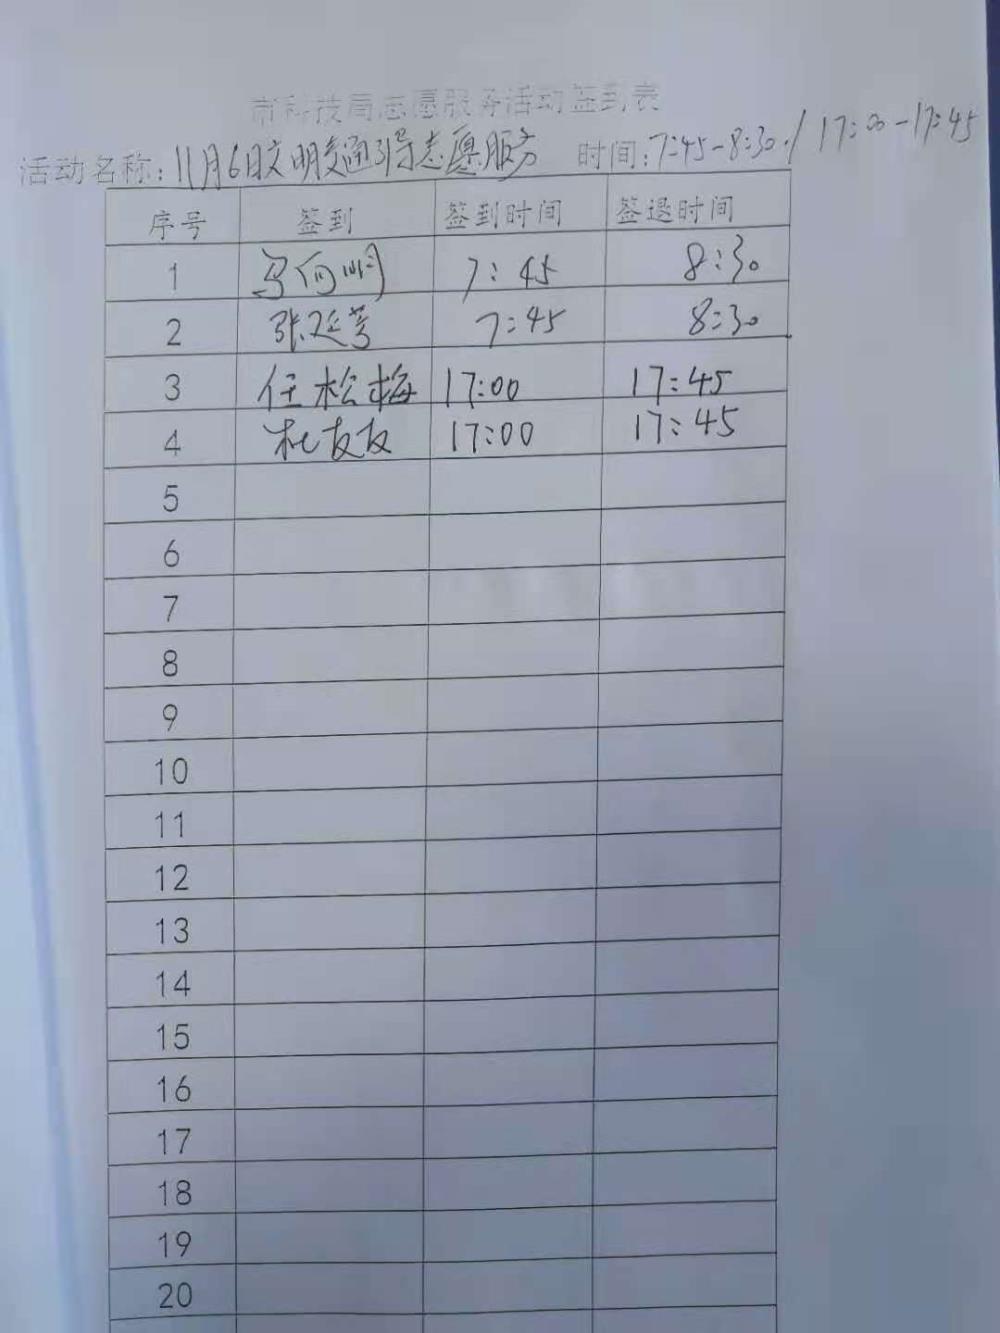 市科技局志愿服务活动签到表
活动名称：11月6日文明交通引导志愿服务 时间：7:45-8:30 / 17:00-17:45
序号 签到 签到时间 签退时间
1 马向明 7:45 8:30
2 张延芳 7:45 8:30
3 任松梅 17:00 17:45
4 杜友友 17:00 17:45
5
6
7
8
9
10
11
12
13
14
15
16
17
18
19
20